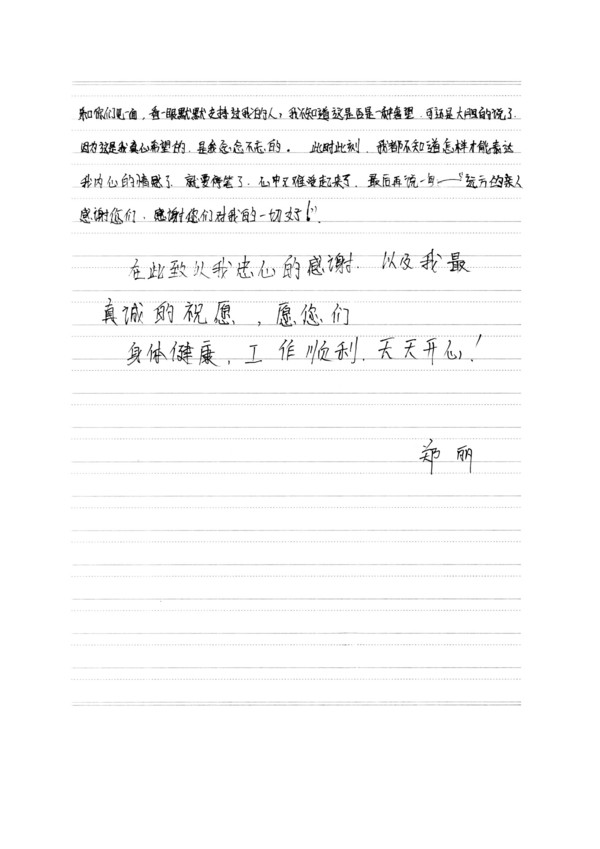 和你们见一面，看一眼默默支持过我的人，我不知道这是否是一种奢望，可还是大胆的说了.
因为这是我真心希望的，是念念不忘的。 此时此刻，我都不知道怎样才能表达
我内心的情感了，就觉得笔了，心中又难受起来了，最后再说一句——“远方的亲人
感谢您们，感谢您们对我的一切好！”
在此致以我忠心的感谢，以及我最
真诚的祝愿，愿您们
身体健康，工作顺利，天天开心！
郑丽